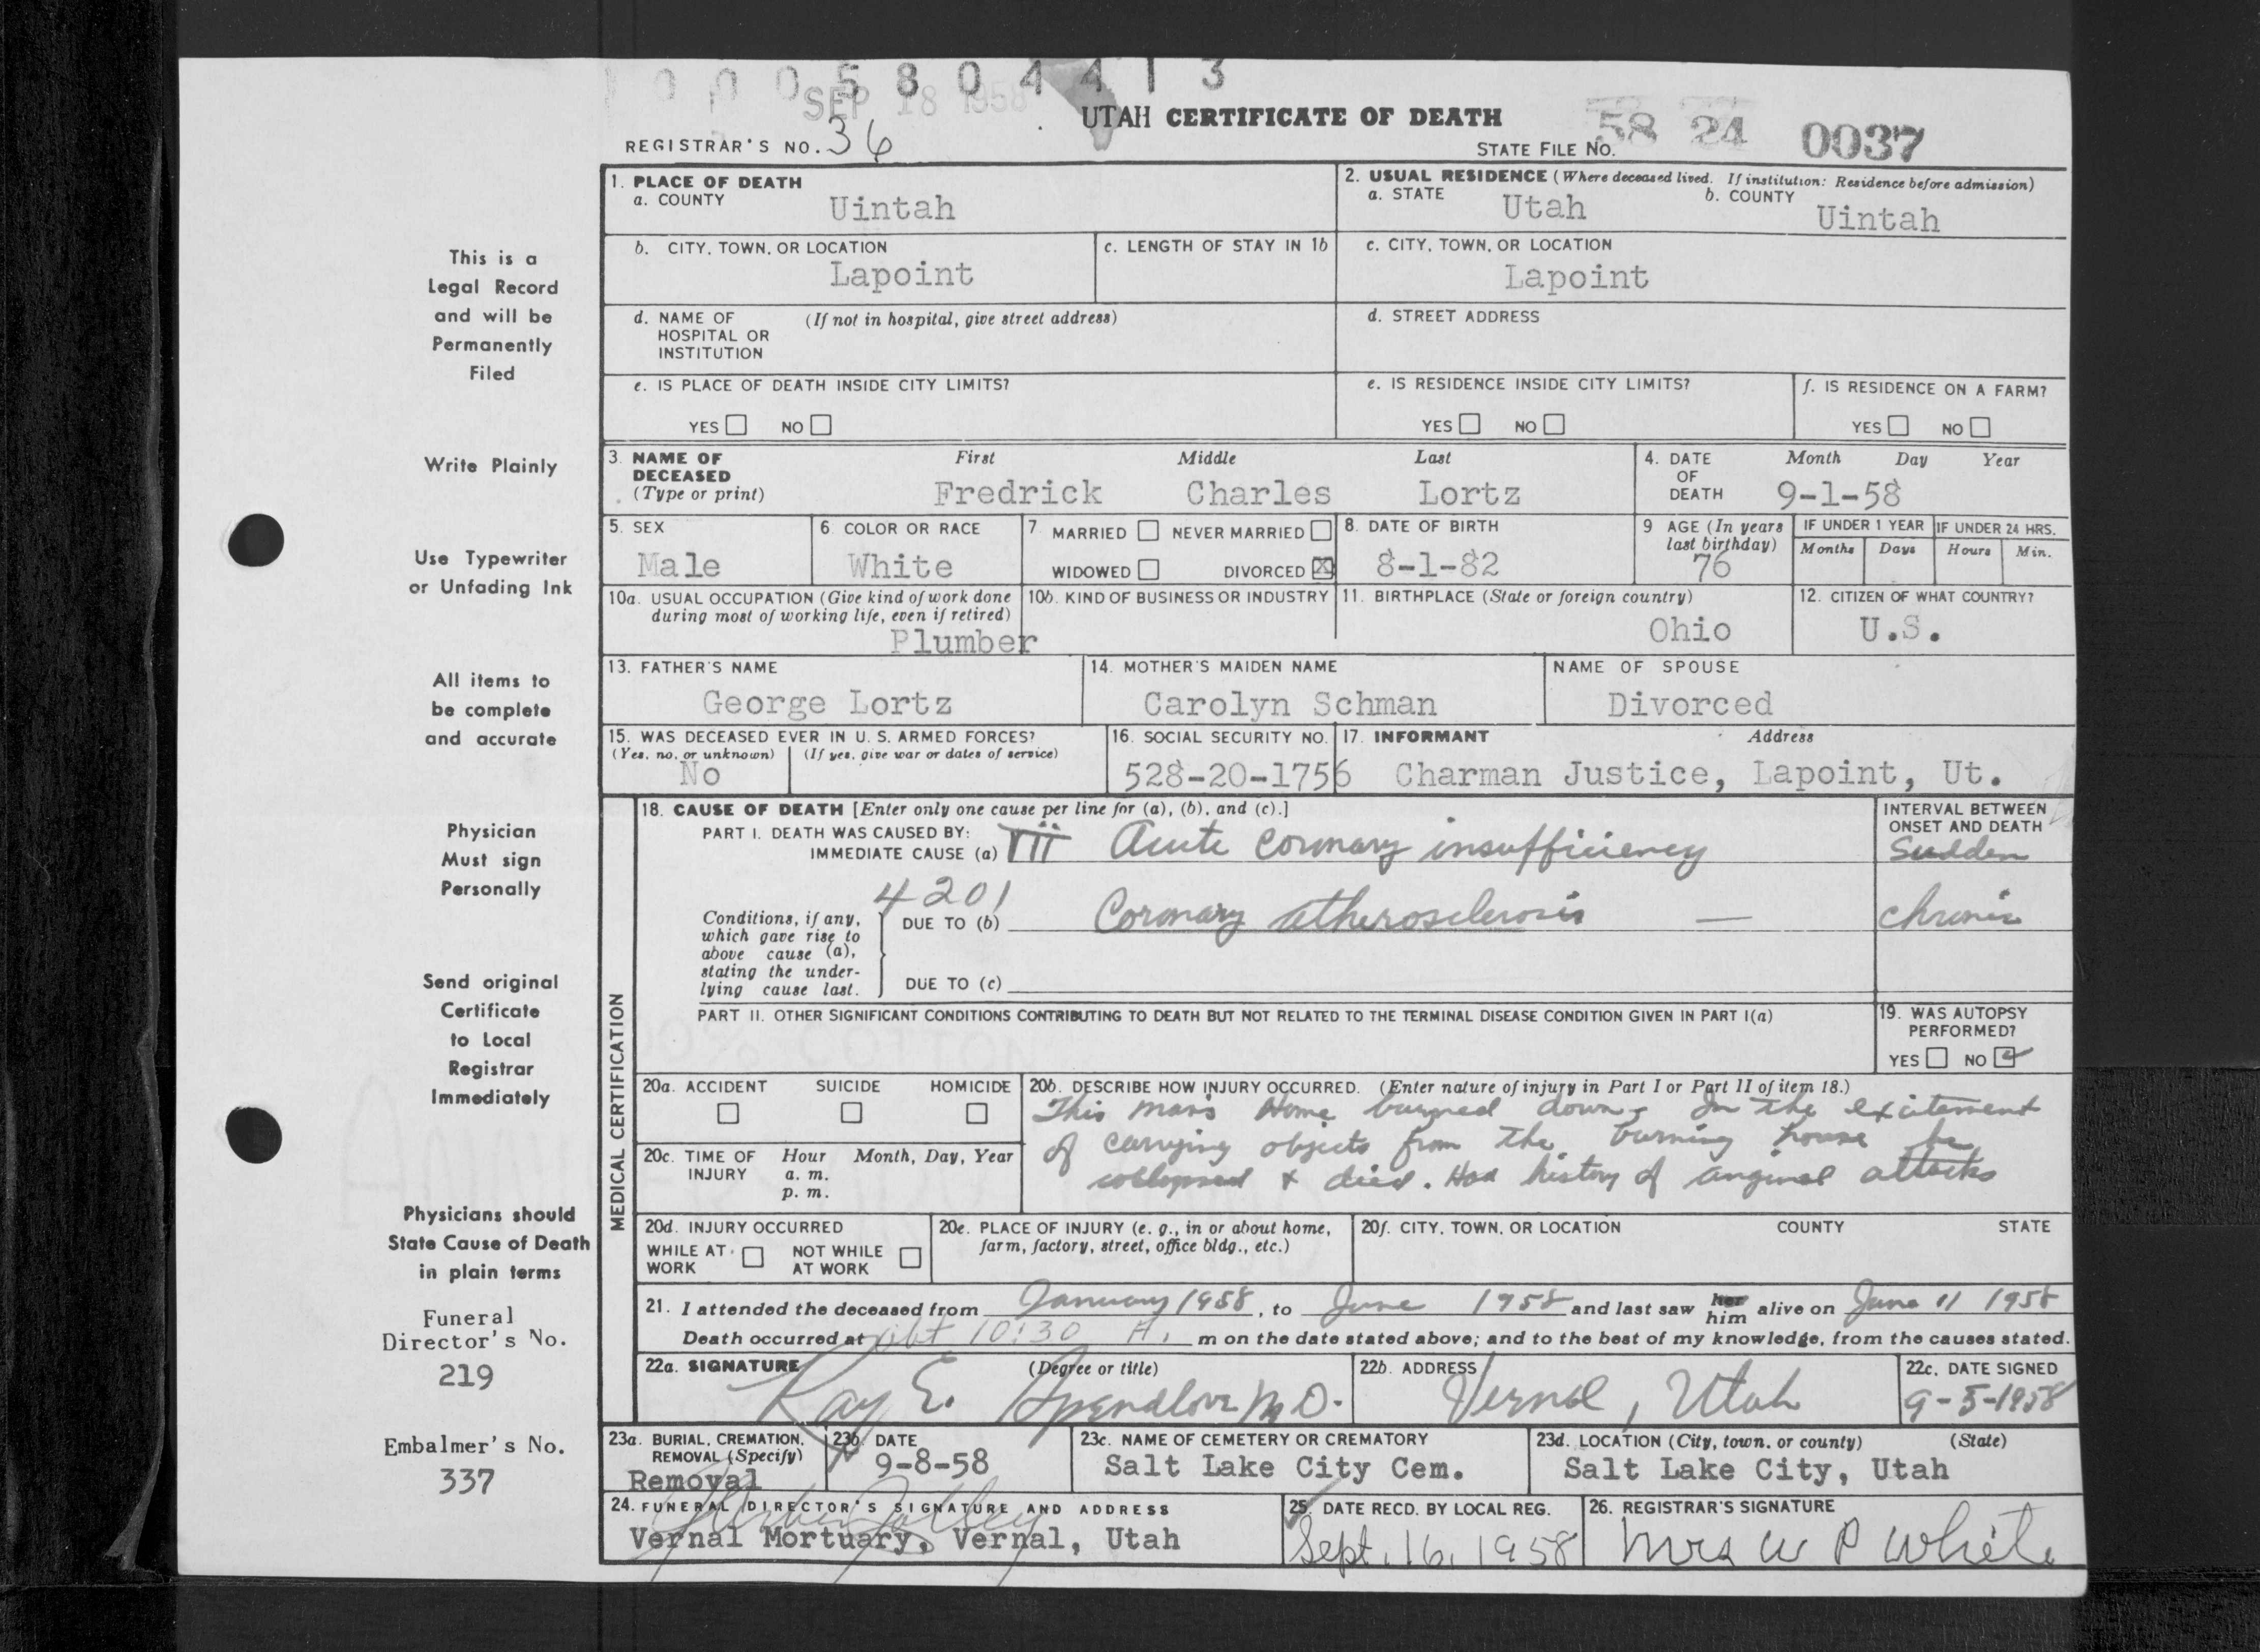 0 0 0 5 8 0 4 4 1 3
SEP 18 1958
UTAH CERTIFICATE OF DEATH
REGISTRAR'S NO. 36
STATE FILE NO. 58 24 0037
This is a
Legal Record
and will be
Permanently
Filed
Write Plainly
Use Typewriter
or Unfading Ink
All items to
be complete
and accurate
Physician
Must sign
Personally
Send original
Certificate
to Local
Registrar
Immediately
Physicians should
State Cause of Death
in plain terms
Funeral
Director's No.
219
Embalmer's No.
337
1. PLACE OF DEATH
a. COUNTY
Uintah
2. USUAL RESIDENCE (Where deceased lived. If institution: Residence before admission)
a. STATE Utah b. COUNTY Uintah
b. CITY, TOWN, OR LOCATION
Lapoint
c. LENGTH OF STAY IN 1b
c. CITY, TOWN, OR LOCATION
Lapoint
d. NAME OF (If not in hospital, give street address)
HOSPITAL OR
INSTITUTION
d. STREET ADDRESS
e. IS PLACE OF DEATH INSIDE CITY LIMITS?
YES NO
e. IS RESIDENCE INSIDE CITY LIMITS?
YES NO
f. IS RESIDENCE ON A FARM?
YES NO
3. NAME OF First Middle Last
DECEASED
(Type or print) Fredrick Charles Lortz
4. DATE Month Day Year
OF
DEATH 9-1-58
5. SEX
Male
6. COLOR OR RACE
White
7. MARRIED NEVER MARRIED
WIDOWED DIVORCED X
8. DATE OF BIRTH
8-1-82
9 AGE (In years
last birthday)
76
IF UNDER 1 YEAR IF UNDER 24 HRS.
Months Days Hours Min.
10a. USUAL OCCUPATION (Give kind of work done
during most of working life, even if retired)
Plumber
10b. KIND OF BUSINESS OR INDUSTRY
11. BIRTHPLACE (State or foreign country)
Ohio
12. CITIZEN OF WHAT COUNTRY?
U.S.
13. FATHER'S NAME
George Lortz
14. MOTHER'S MAIDEN NAME
Carolyn Schman
NAME OF SPOUSE
Divorced
15. WAS DECEASED EVER IN U. S. ARMED FORCES?
(Yes, no, or unknown) (If yes, give war or dates of service)
No
16. SOCIAL SECURITY NO.
528-20-1756
17. INFORMANT Address
Charman Justice, Lapoint, Ut.
MEDICAL CERTIFICATION
18. CAUSE OF DEATH [Enter only one cause per line for (a), (b), and (c).]
PART I. DEATH WAS CAUSED BY:
IMMEDIATE CAUSE (a) Acute coronary insufficiency
INTERVAL BETWEEN
ONSET AND DEATH
Sudden
4201
Conditions, if any,
which gave rise to
above cause (a),
stating the under-
lying cause last.
DUE TO (b) Coronary atherosclerosis —
chronic
DUE TO (c)
PART II. OTHER SIGNIFICANT CONDITIONS CONTRIBUTING TO DEATH BUT NOT RELATED TO THE TERMINAL DISEASE CONDITION GIVEN IN PART I(a)
19. WAS AUTOPSY
PERFORMED?
YES NO
20a. ACCIDENT SUICIDE HOMICIDE
20b. DESCRIBE HOW INJURY OCCURRED. (Enter nature of injury in Part I or Part II of item 18.)
This man's Home burned down - In the excitement
of carrying objects from the burning house he
collapsed & died. Had history of anginal attacks
20c. TIME OF Hour Month, Day, Year
INJURY a. m.
p. m.
20d. INJURY OCCURRED
WHILE AT NOT WHILE
WORK AT WORK
20e. PLACE OF INJURY (e. g., in or about home,
farm, factory, street, office bldg., etc.)
20f. CITY, TOWN, OR LOCATION COUNTY STATE
21. I attended the deceased from January 1958, to June 1958 and last saw her him alive on June 11 1958
Death occurred at abt 10:30 A. m on the date stated above; and to the best of my knowledge, from the causes stated.
22a. SIGNATURE (Degree or title)
Ray E. Spendlove M.D.
22b. ADDRESS
Vernal, Utah
22c. DATE SIGNED
9-5-1958
23a. BURIAL, CREMATION,
REMOVAL (Specify)
Removal
23b. DATE
9-8-58
23c. NAME OF CEMETERY OR CREMATORY
Salt Lake City Cem.
23d. LOCATION (City, town, or county) (State)
Salt Lake City, Utah
24. FUNERAL DIRECTOR'S SIGNATURE AND ADDRESS
Vernal Mortuary, Vernal, Utah
25. DATE RECD. BY LOCAL REG.
Sept. 16, 1958
26. REGISTRAR'S SIGNATURE
Mrs W P White